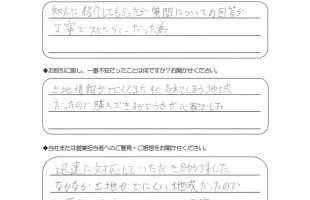 知人に紹介してもらったが質問についての回答が
丁寧でスピーディーだった為
◆お取引に際し、一番不安だったことは何ですか？お聞かせください。
土地情報がでにくくまたすぐ売れてしまう地域
だったので購入できるかどうかが心配でした
◆当社または営業担当者へのご意見・ご感想をお聞かせください。
迅速に対応していただき助かりました
なかなか土地がでにくい地域だったので